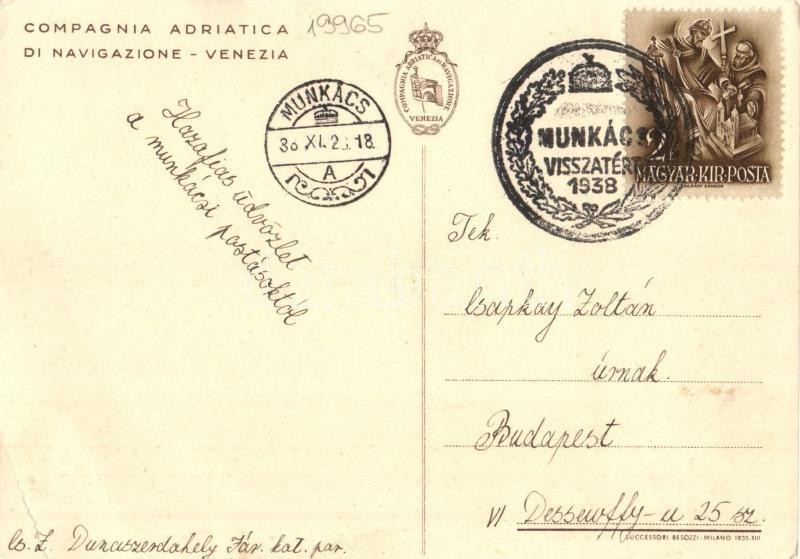 COMPAGNIA ADRIATICA
DI NAVIGAZIONE – VENEZIA
19965
COMPAGNIA ADRIATICA DI NAVIGAZIONE
VENEZIA
MUNKÁCS
38 XI. 18
A
MUNKÁCS
VISSZATÉRT
1938
2f
MAGYAR·KIR·POSTA
Hazafias üdvözlet
a munkácsi postásoktól
Tek.
Csapkay Zoltán
úrnak.
Budapest
VI Dessewffy-u 25 sz.
SUCCESSORI BESOZZI - MILANO 1935-XIII
Cs. Z. Dunaszerdahely Tár. kat. par.